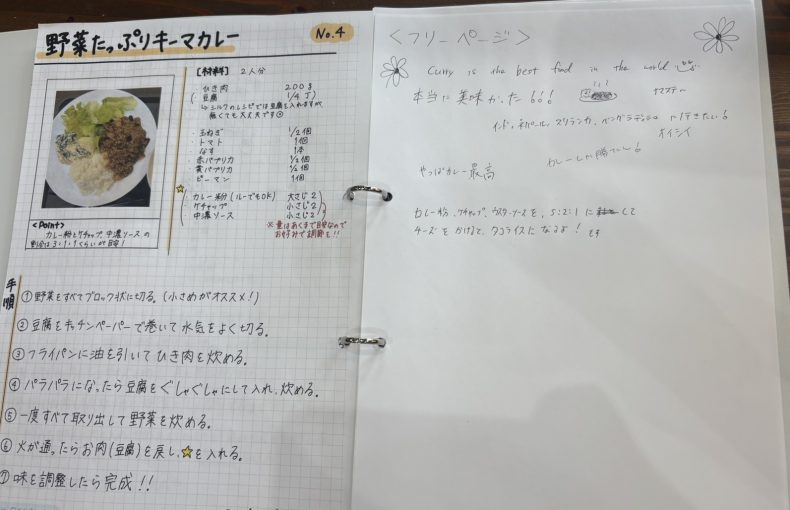 野菜たっぷりキーマカレー
No.4
[材料] 2人分
ひき肉 200g
(豆腐 1/4丁)
↳シルクのレシピでは豆腐を入れますが
無くても大丈夫です
・玉ねぎ 1/2個
・トマト 1個
・なす 1本
・赤パプリカ 1/2個
・黄パプリカ 1/2個
・ピーマン 1個
カレー粉(ルーでもOK) 大さじ2
ケチャップ 小さじ2
中濃ソース 小さじ2
※量はあくまで目安なので
お好みで調節を!!
<Point>
カレー粉とケチャップ、中濃ソースの
割合は3:1:1くらいが目安!
手順
①野菜をすべてブロック状に切る。(小さめがオススメ!)
②豆腐をキッチンペーパーで巻いて水気をよく切る。
③フライパンに油を引いてひき肉を炒める。
④パラパラになったら豆腐をぐしゃぐしゃにして入れ、炒める。
⑤一度すべて取り出して野菜を炒める。
⑥火が通ったらお肉(豆腐)を戻し、☆を入れる。
⑦味を調整したら完成!!
<フリーページ>
Curry is the best food in the world
本当に美味かった!!!
ナマステー
インド、ネパール、スリランカ、バングラデシュ に行きたい!
オイシイ
カレーしか勝たん!
やっぱカレー最高
カレー粉、ケチャップ、ウスターソースを、5:2:1 に して
チーズをかけると、タコライスになるよ!